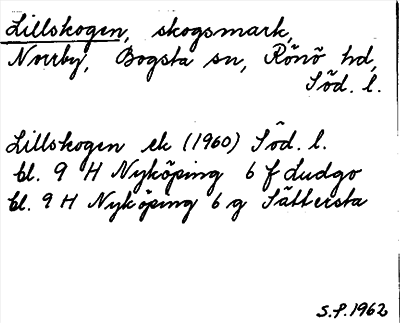 Lillskogen, skogsmark,
Norrby, Bogsta sn, Rönö hd,
Söd. l.
Lillskogen ek (1960) Söd. l.
bl. 9 H Nyköping 6 f Ludgo
bl. 9 H Nyköping 6 g Sättersta
S.P. 1962